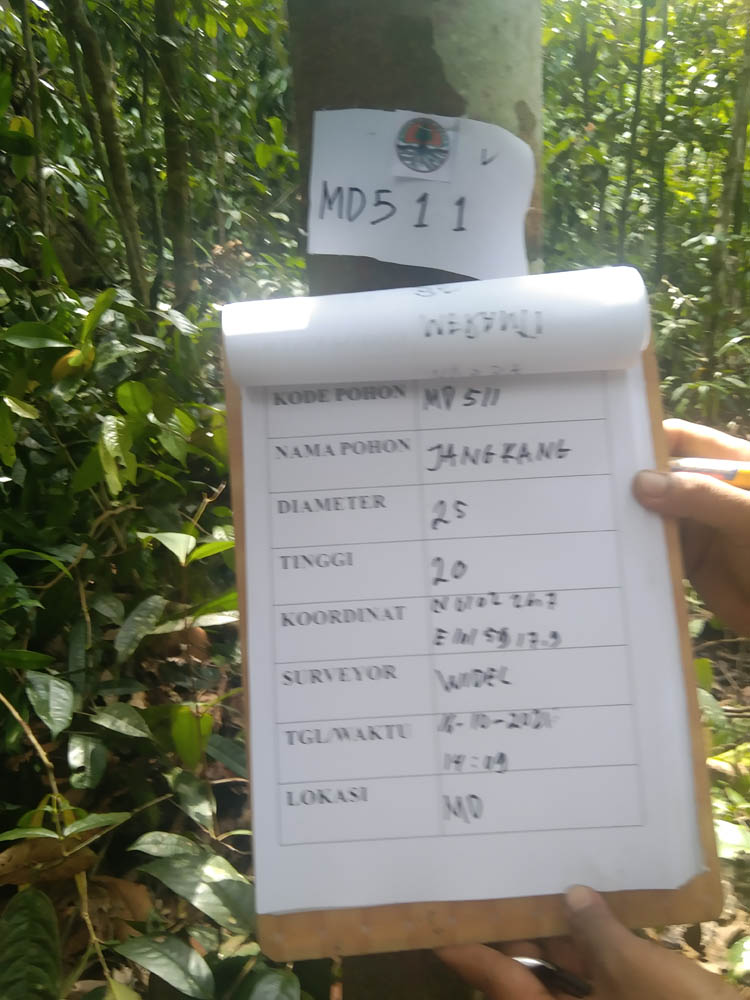 MD511
KODE POHON MD 511
NAMA POHON JANGKANG
DIAMETER 25
TINGGI 20
KOORDINAT N 01 02 26.7
E 101 59 17.9
SURVEYOR WIDEL
TGL/WAKTU 16-10-2021
14:09
LOKASI MD